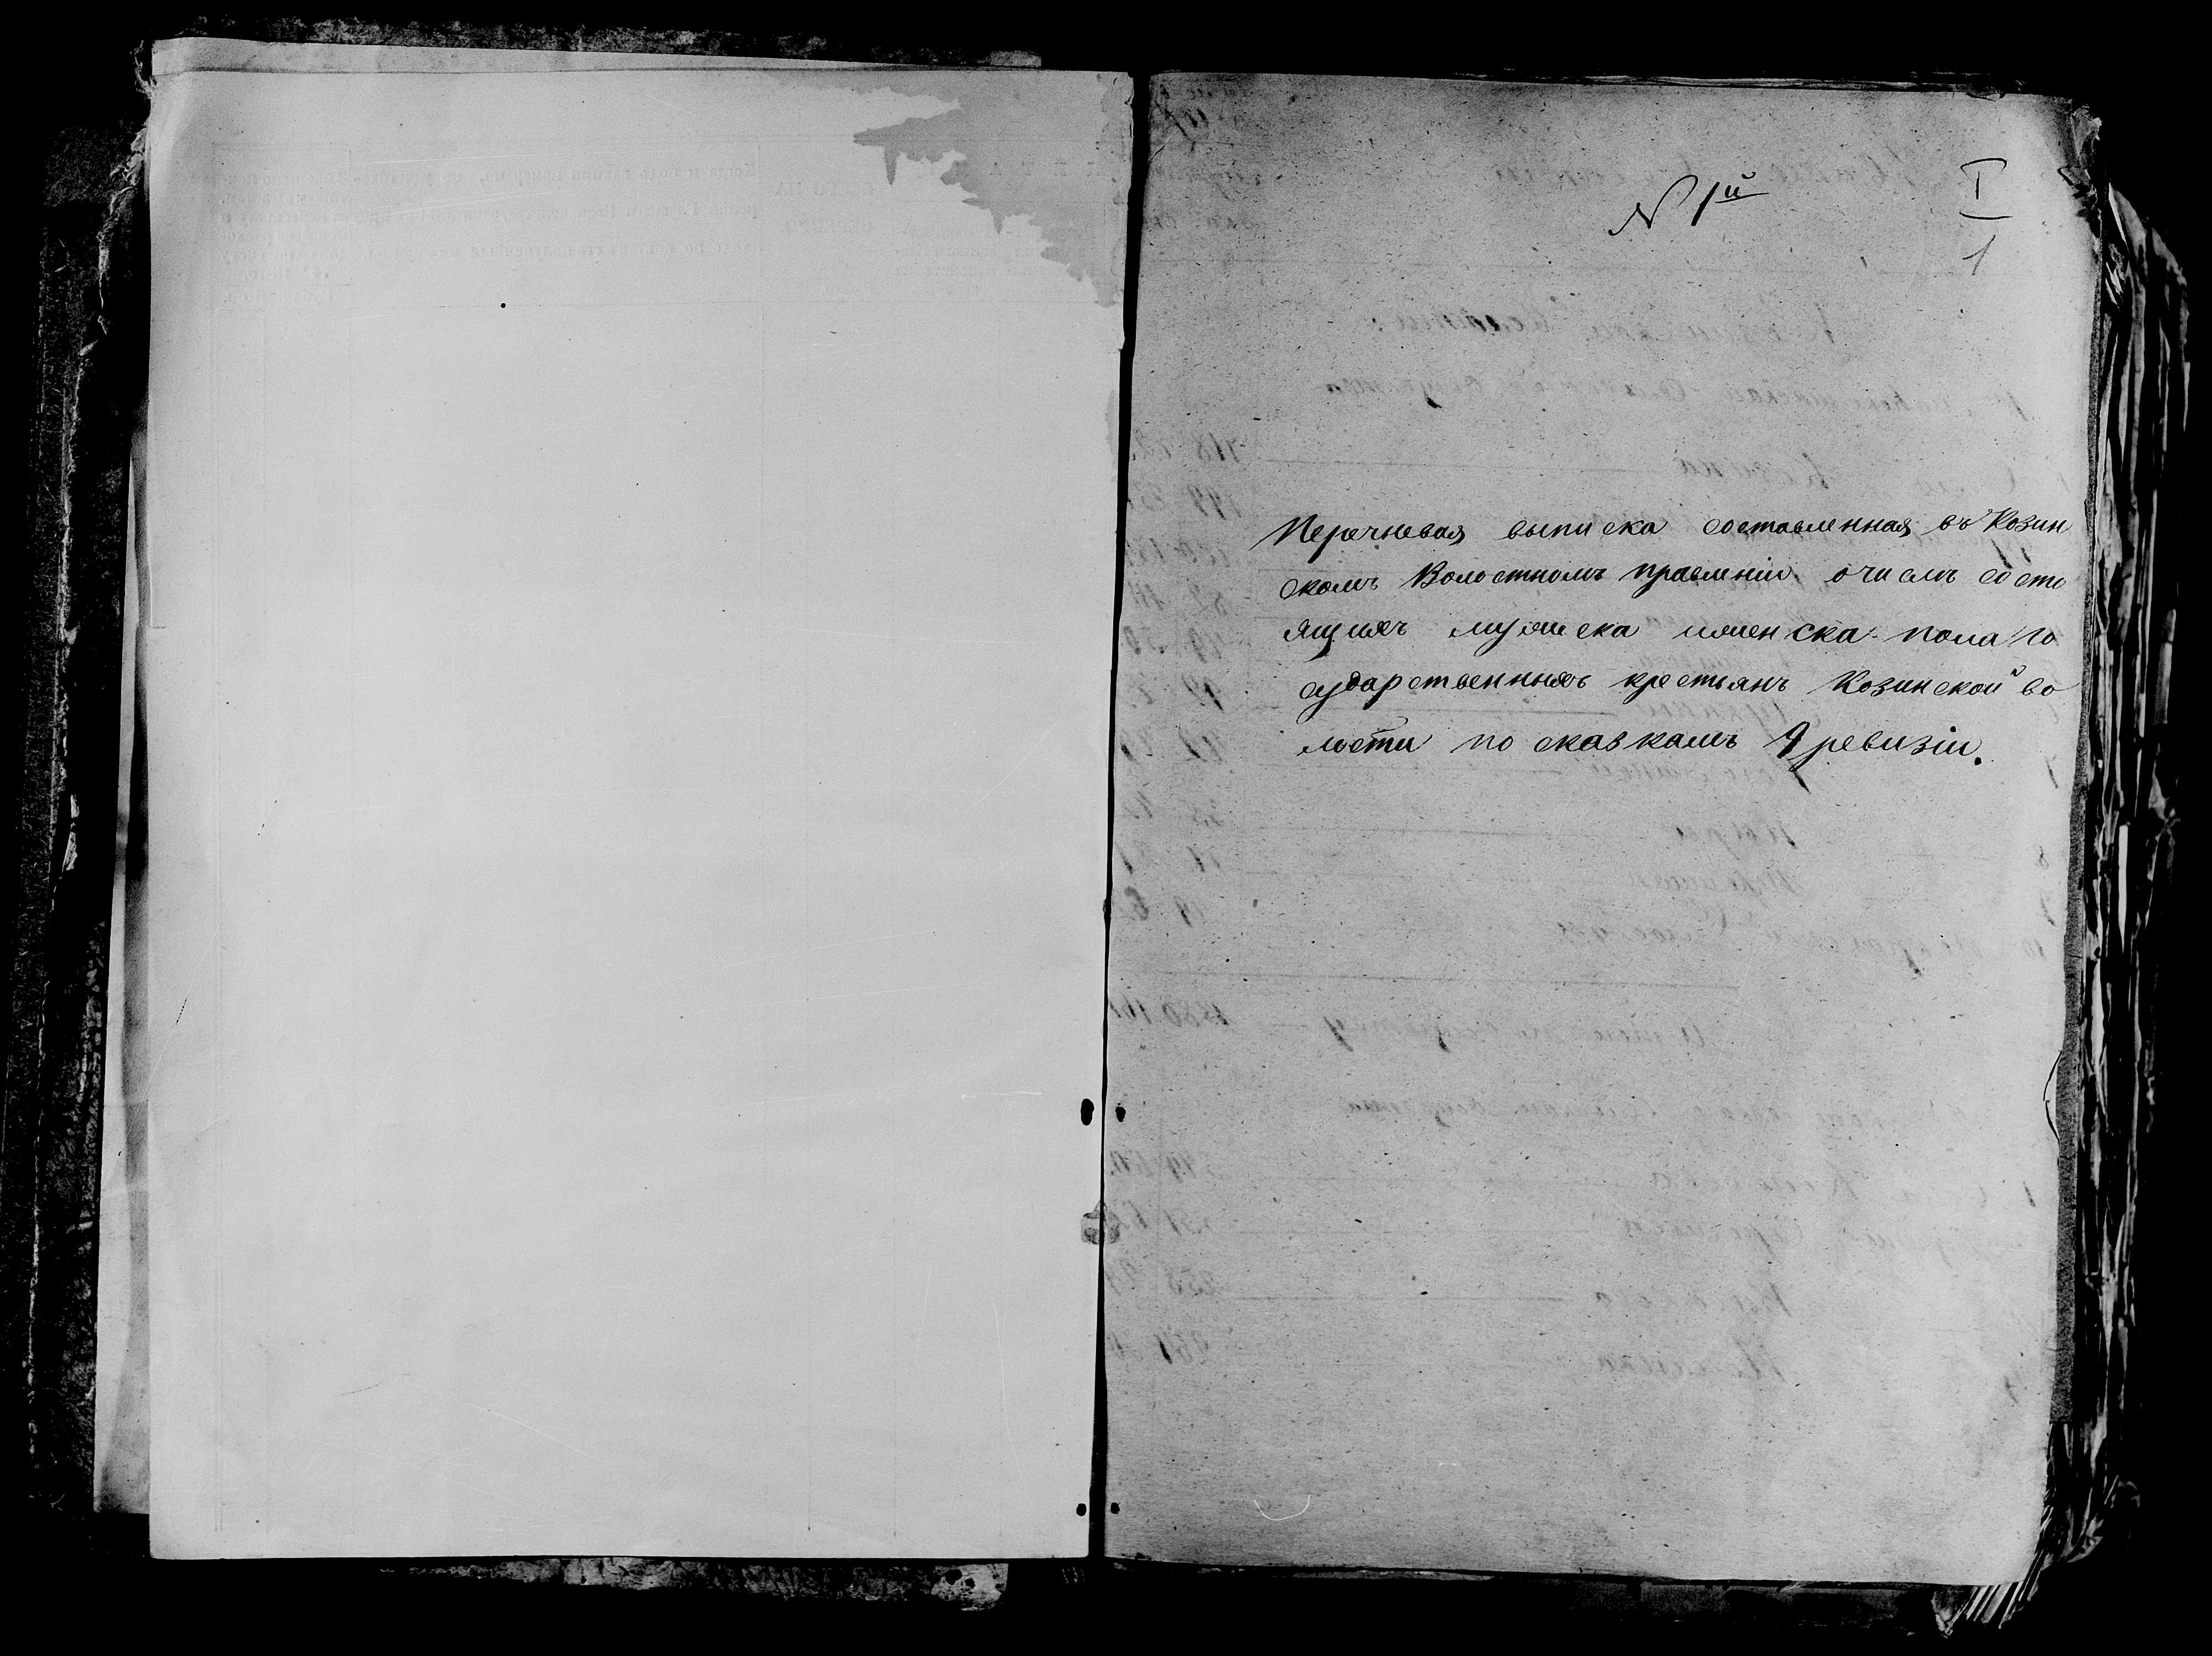 N 1й
I
1
Перечневая выписка составленная въ Козин
скомъ Волостномъ правленіи, о числѣ состо
ящихъ мужеска и женска пола го
сударственныхъ крестьянъ Козинской во
лости по сказкамъ 9 ревизіи.